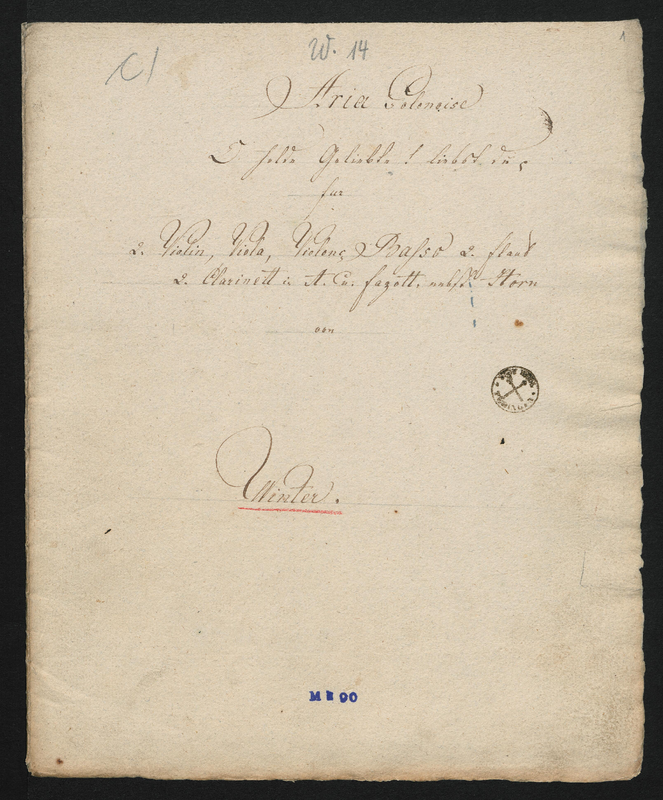 1
C/
W. 14
Aria Polonoise
O holde Geliebte! liebst du
fur
2. Violin, Viola, Violonç Basso 2. flaut
2. Clarinett in A. u. fagott. nebst Horn
von
Winter.
M E 90